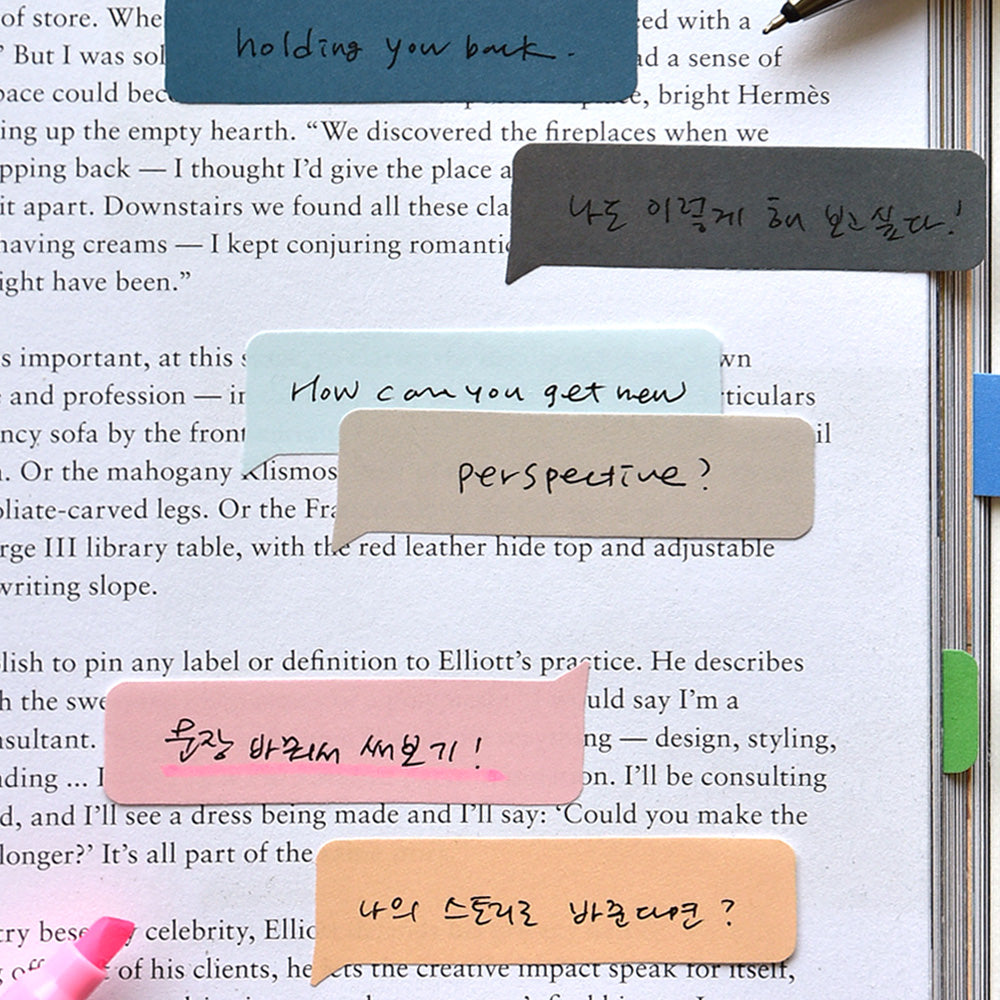 of store. Whe
ed with a
holding you back.
But I was sol
ad a sense of
pace could bec
e, bright Hermès
ing up the empty hearth. “We discovered the fireplaces when we
pping back — I thought I’d give the place a
it apart. Downstairs we found all these cla
나도 이렇게 해 보고싶다!
having creams — I kept conjuring romantic
ight have been.”
s important, at this
wn
How can you get new
and profession — in
rticulars
ncy sofa by the front
il
. Or the mahogany Klismos
perspective?
oliate-carved legs. Or the Fra
rge III library table, with the red leather hide top and adjustable
writing slope.
lish to pin any label or definition to Elliott’s practice. He describes
h the swe
uld say I’m a
nsultant.
문장 바꿔서 써보기!
ng — design, styling,
ding ... I
on. I’ll be consulting
d, and I’ll see a dress being made and I’ll say: ‘Could you make the
longer?’ It’s all part of the
나의 스토리로 바꾼다면?
try bes
celebrity, Ellio
of his clients, he
ets the creative impact speak for itself,